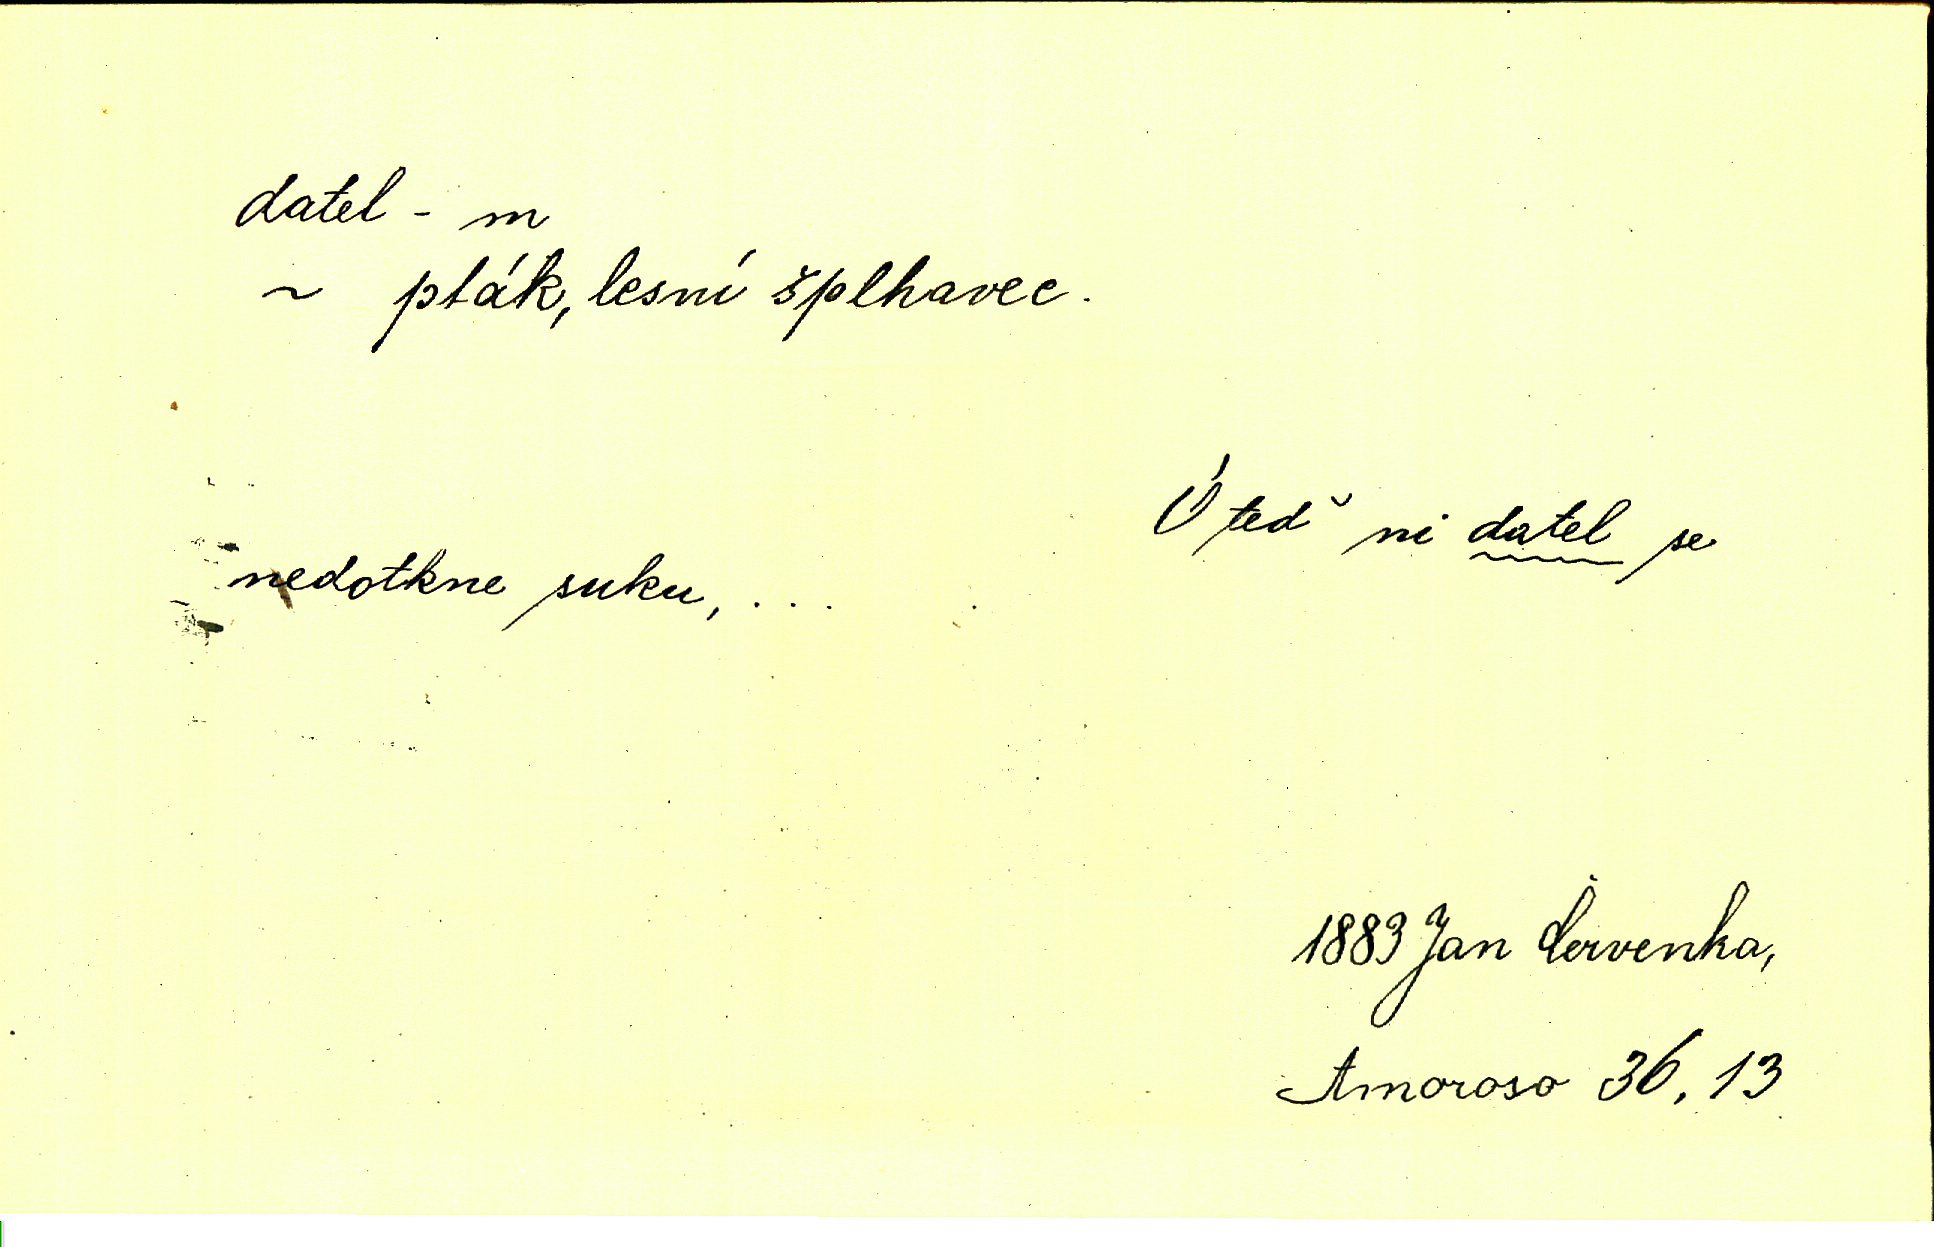 datel - m
~ pták, lesní šplhavec.
Ó teď ni datel se
nedotkne suku, ...
1883 Jan Červenka,
Amoroso 36, 13